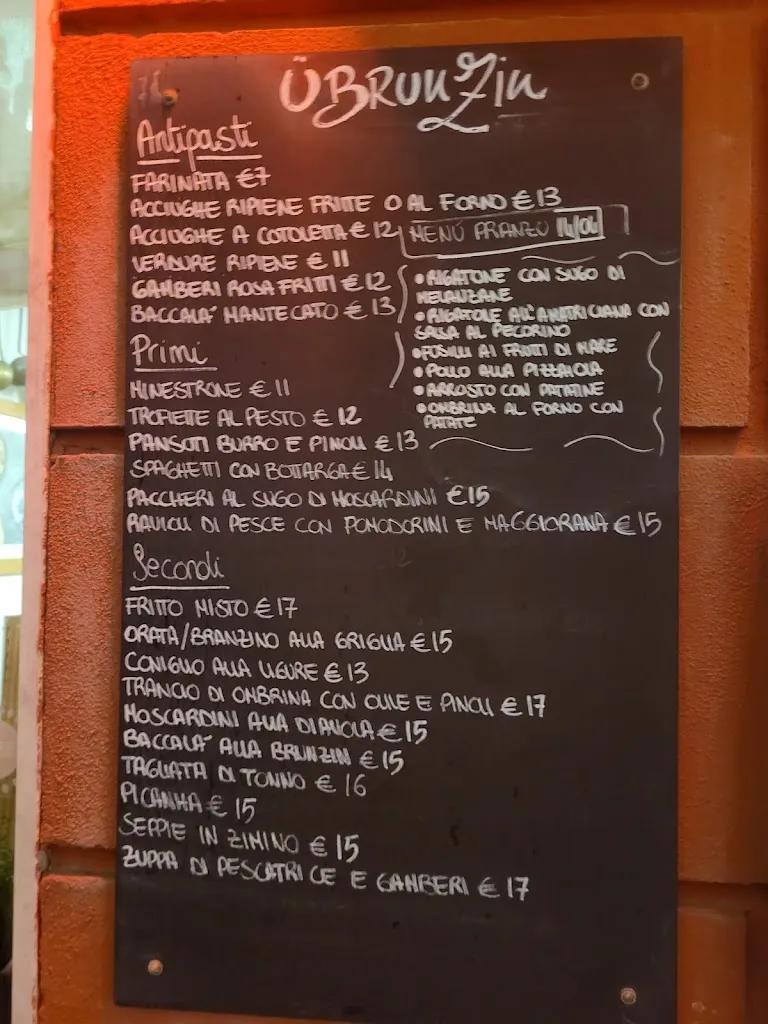 ÜBRUNZIN
Antipasti
FARINATA €7
ACCIUGHE RIPIENE FRITTE O AL FORNO € 13
ACCIUGHE A COTOLETTA € 12
VERDURE RIPIENE € 11
GAMBERI ROSA FRITTI € 12
BACCALA' MANTECATO € 13
MENÚ PRANZO 14/04
• RIGATONE CON SUGO DI
MELANZANE
• RIGATOLE ALL'AMATRICIANA CON
SALSA AL PECORINO
• FUSILLI AI FRUTTI DI MARE
• POLLO ALLA PIZZAIOLA
• ARROSTO CON PATATINE
• OMBRINA AL FORNO CON
PATATE
Primi
MINESTRONE € 11
TROFIETTE AL PESTO € 12
PANSOTI BURRO E PINOLI € 13
SPAGHETTI CON BOTTARGA € 14
PACCHERI AL SUGO DI MOSCARDINI €15
RAVIOLI DI PESCE CON POMODORINI E MAGGIORANA € 15
Secondi
FRITTO MISTO € 17
ORATA/BRANZINO ALLA GRIGLIA € 15
CONIGLIO ALLA LIGURE € 13
TRANCIO DI OMBRINA CON OLIVE E PINOLI € 17
MOSCARDINI ALLA DIAVOLA € 15
BACCALA' ALLA BRUNZIN € 15
TAGLIATA DI TONNO € 16
PICANHA € 15
SEPPIE IN ZIMINO € 15
ZUPPA DI PESCATRICE E GAMBERI € 17